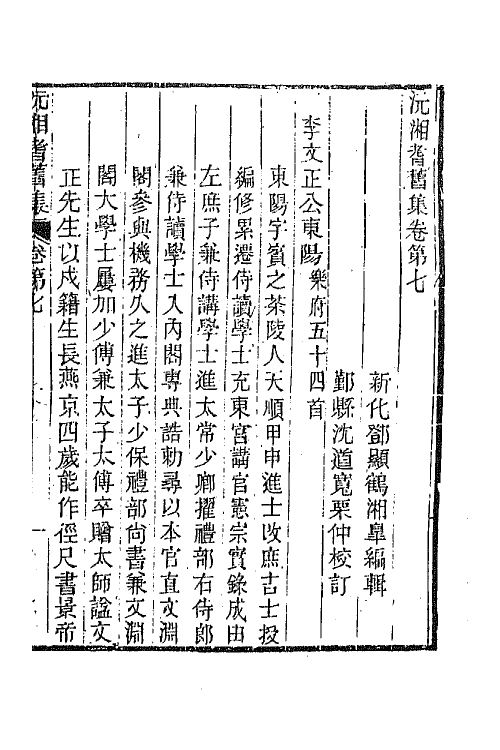 沅湘耆舊集卷第七
新化鄧顯鶴湘臯編輯
鄞縣沈道寬栗仲校訂
李文正公東陽樂府五十四首
東陽字賓之茶陵人天順甲申進士改庶吉士授
編修累遷侍讀學士充東宮講官憲宗實錄成由
左庶子兼侍講學士進太常少卿擢禮部右侍郎
兼侍讀學士入內閣專典誥勅尋以本官直文淵
閣參與機務久之進太子少保禮部尚書兼文淵
閣大學士屢加少傅兼太子太傅卒贈太師諡文
正先生以戍籍生長燕京四歲能作徑尺書景帝
沅湘耆舊集 卷第七 一